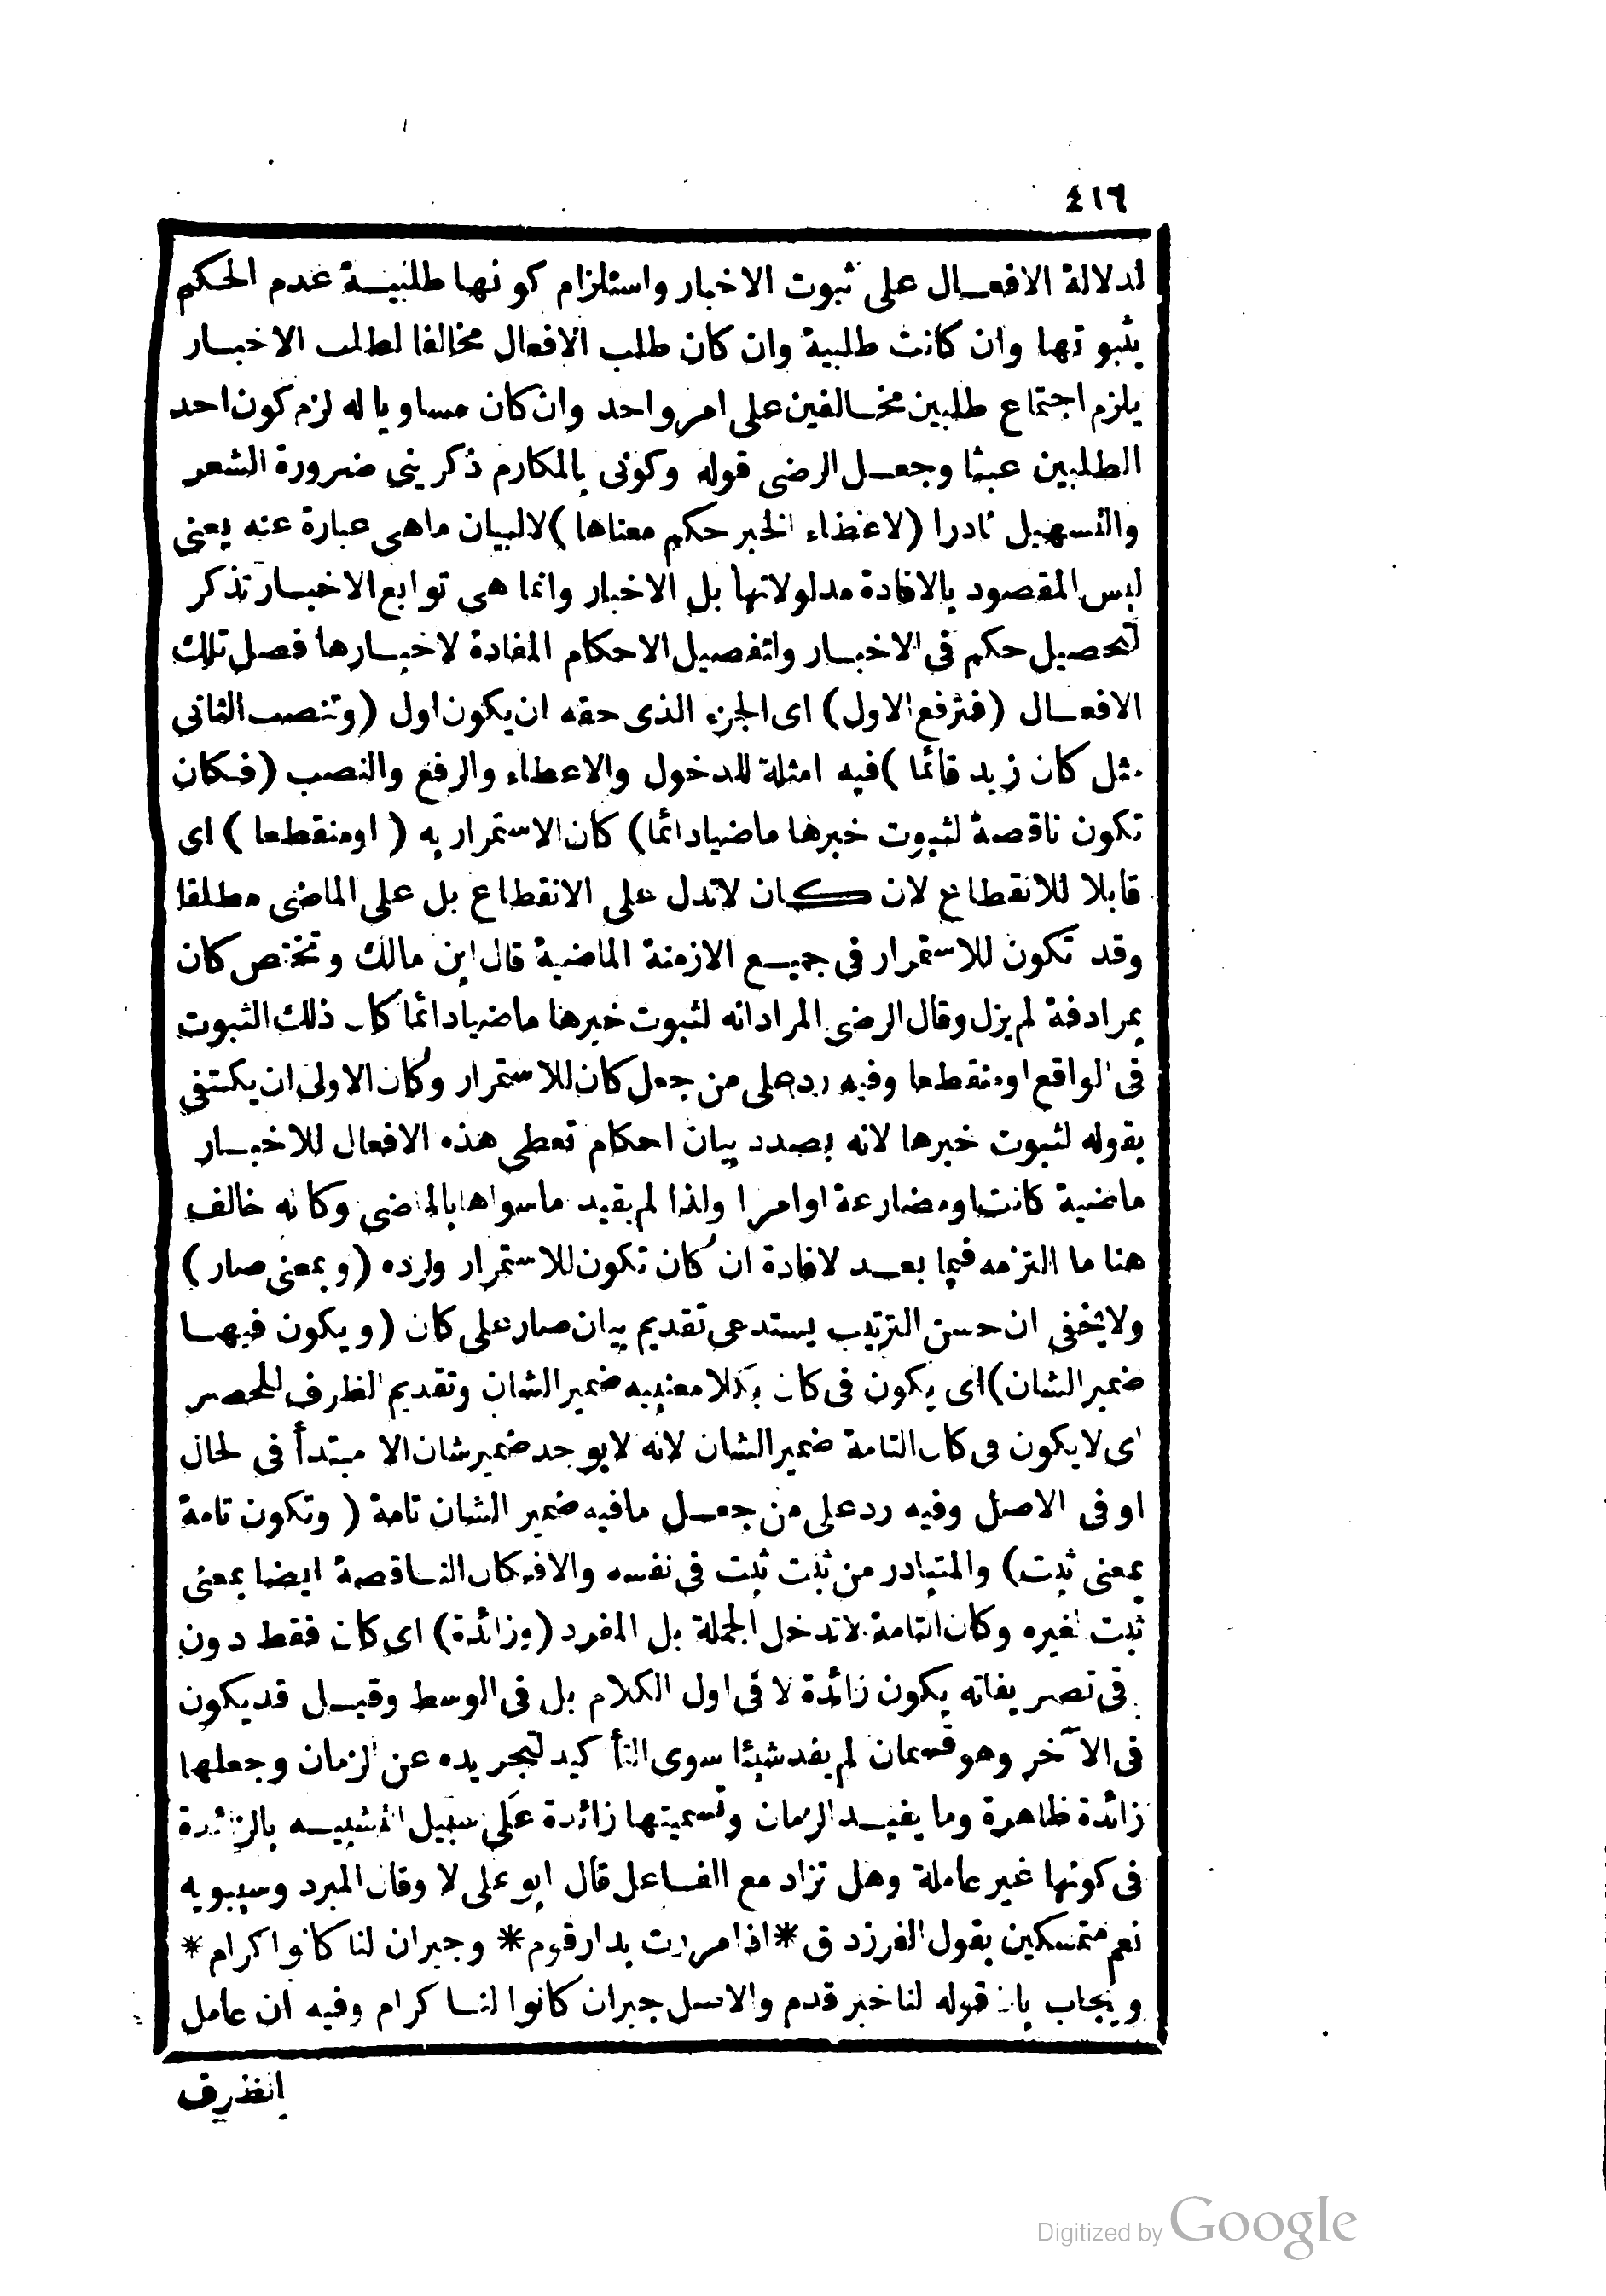 ٤١٦
لدلالة الافعال على ثبوت الاخبار واستلزام كونها طلبية عدم الحكم
بثبوتها وان كانت طلبية وان كان طلب الافعال مخالفا لطلب الاخبار
يلزم اجتماع طلبين مخالفين على امر واحد وان كان مساويا له لزم كون احد
الطلبين عبثا وجعل الرضى قوله وكونى بالمكارم ذكرينى ضرورة الشعر
والتسهيل نادرا (لاعطاء الخبر حكم معناها) لالبيان ماهى عبارة عنه يعنى
ليس المقصود بالافادة مدلولاتها بل الاخبار وانما هى توابع الاخبار تذكر
لتحصيل حكم فى الاخبار ولتفصيل الاحكام المفادة لاخبارها فصل تلك
الافعال (فترفع الاول) اى الجزء الذى حقه ان يكون اول (وتنصب الثانى
مثل كان زيد قائما) فيه امثلة للدخول والاعطاء والرفع والنصب (فكان
تكون ناقصة لثبوت خبرها ماضيا دائما) كان الاستمرار به (اومنقطعا) اى
قابلا للانقطاع لان كان لاتدل على الانقطاع بل على الماضى مطلقا
وقد تكون للاستمرار فى جميع الازمنة الماضية قال ابن مالك وتختص كان
بمرادفة لم يزل وقال الرضى المراد انه لثبوت خبرها ماضيا دائما كان ذلك الثبوت
فى الواقع اومنقطعا وفيه رد على من جعل كان للاستمرار وكان الاولى ان يكتفى
بقوله لثبوت خبرها لانه بصدد بيان احكام تعطى هذه الافعال للاخبار
ماضية كانت اومضارعة اوامرا ولذا لم يقيد ماسواها بالماضى وكانه خالف
هنا ما التزمه فيما بعد لافادة ان كان تكون للاستمرار ولرده (وبمعنى صار)
ولايخفى ان حسن الترتيب يستدعى تقديم بيان صار على كان (ويكون فيها
ضمير الشان) اى يكون فى كان بكلا معنييه ضمير الشان وتقديم الظرف للحصر
اى لايكون فى كان التامة ضمير الشان لانه لايوجد ضمير شان الا مبتدأ فى لحال
او فى الاصل وفيه رد على من جعل مافيه ضمير الشان تامة (وتكون تامة
بمعنى ثبت) والمتبادر من ثبت ثبت فى نفسه والافكان الناقصة ايضا بمعنى
ثبت لغيره وكان التامة لاتدخل الجملة بل المفرد (وزائدة) اى كان فقط دون
فى تصريفاته يكون زائدة لا فى اول الكلام بل فى الوسط وقيل قديكون
فى الآخر وهو قسمان لم يفد شيئا سوى التأكيد لتجريده عن الزمان وجعلها
زائدة ظاهرة وما يفيد الزمان وتسميتها زائدة على سبيل التشبيه بالزائدة
فى كونها غير عاملة وهل تزاد مع الفاعل قال ابو على لا وقال المبرد وسيبويه
نعم متمسكين بقول الفرزدق * اذا مررت بدار قوم * وجيران لنا كانوا كرام *
ويجاب بان قوله لنا خبر قدم والاصل جيران كانوا لنا كرام وفيه ان عامل
الظرف
Digitized by Google